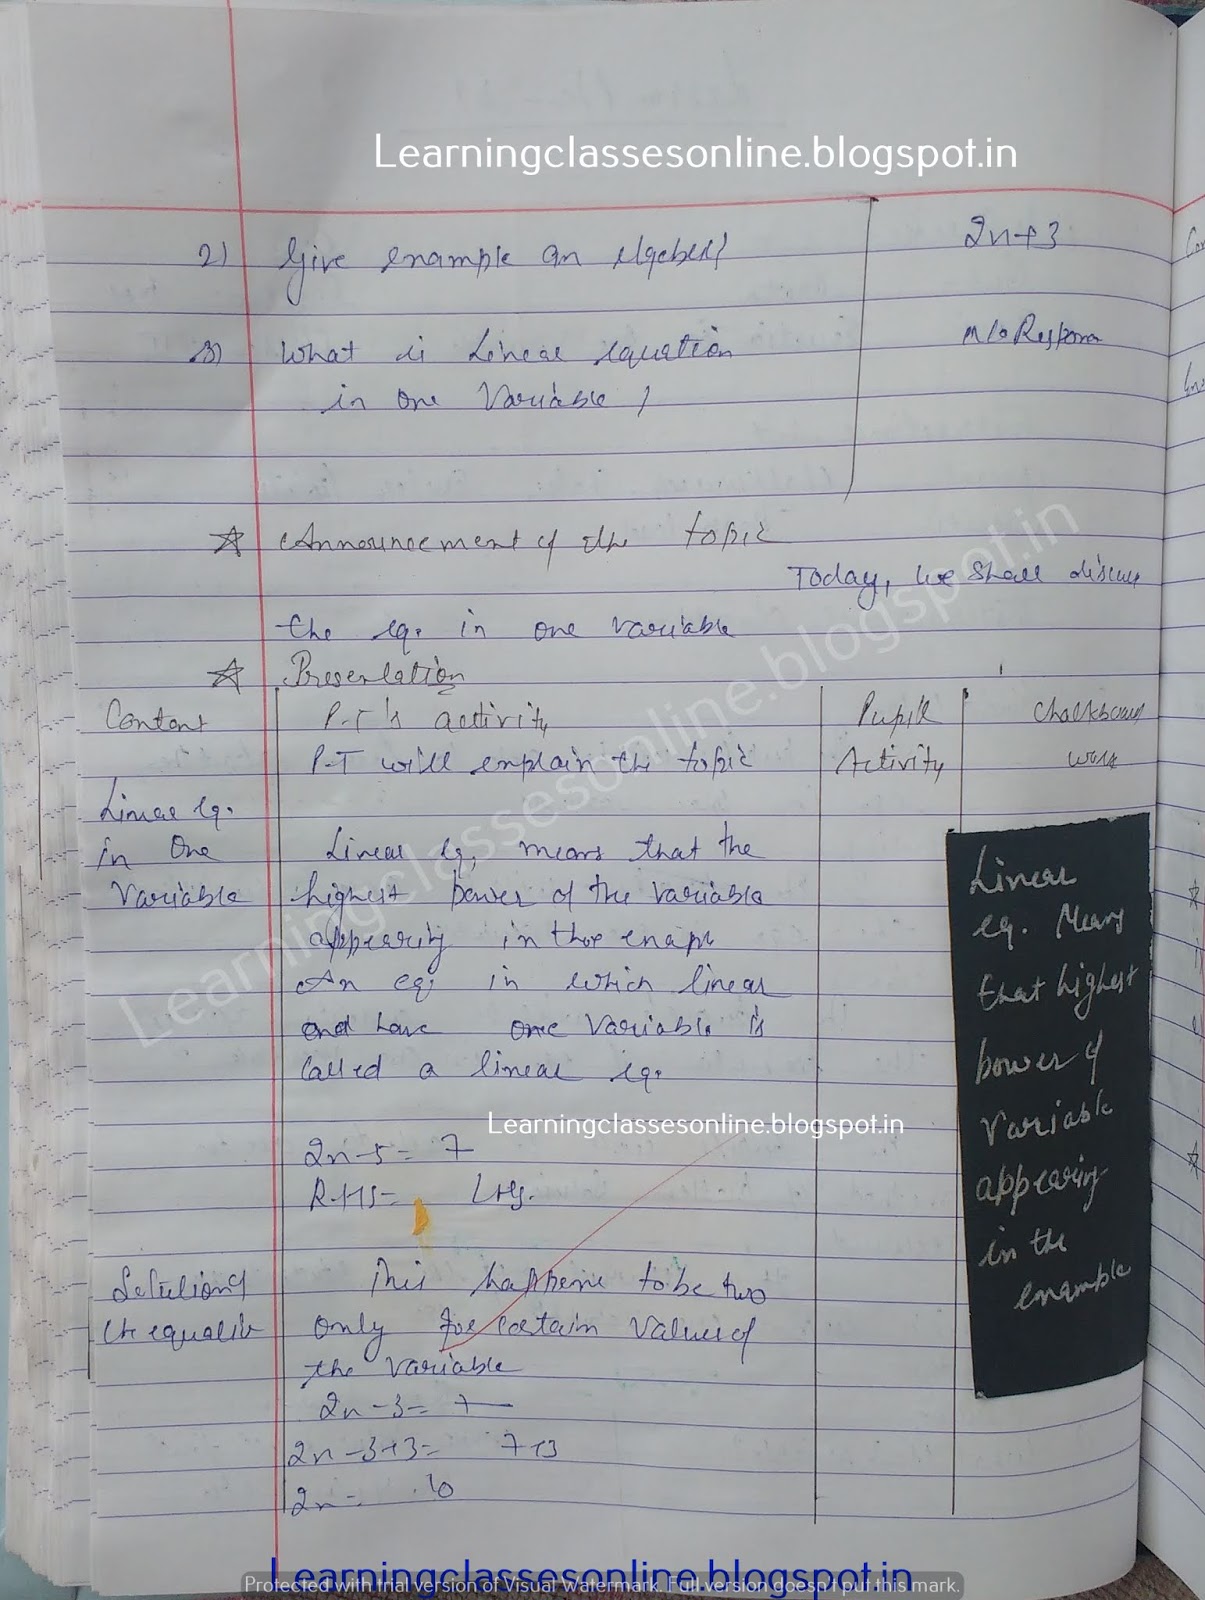 Learningclassesonline.blogspot.in
2) Give enample an 2n+3
3) What is Linear equation
in one Variable ?
Announcement of the topic
Today, we shall discuss
the eq. in one variable
Presentation
Content P-T's activity Pupil Chalkboard
P-T will enplain the topic Activity work
Linear eq.
in One Linear Eq, means that the
Variable highest power of the variable
appearing in the
An eq. in which linear
and have one Variable is
called a linear eq.
Learningclassesonline.blogspot.in
2n-5= 7
R.HS= LHS.
Solution of This happens to be two
only for certain values of
the variable
2n-3= 7
2n-3+3= 7+3
2n= 10
Linear
eq. Means
that highest
power of
Variable
appearing
in the
enample
Learningclassesonline.blogspot.in
Learningclassesonline.blogspot.in
Protected with trial version of Visual Watermark. Full version doesn't put this mark.